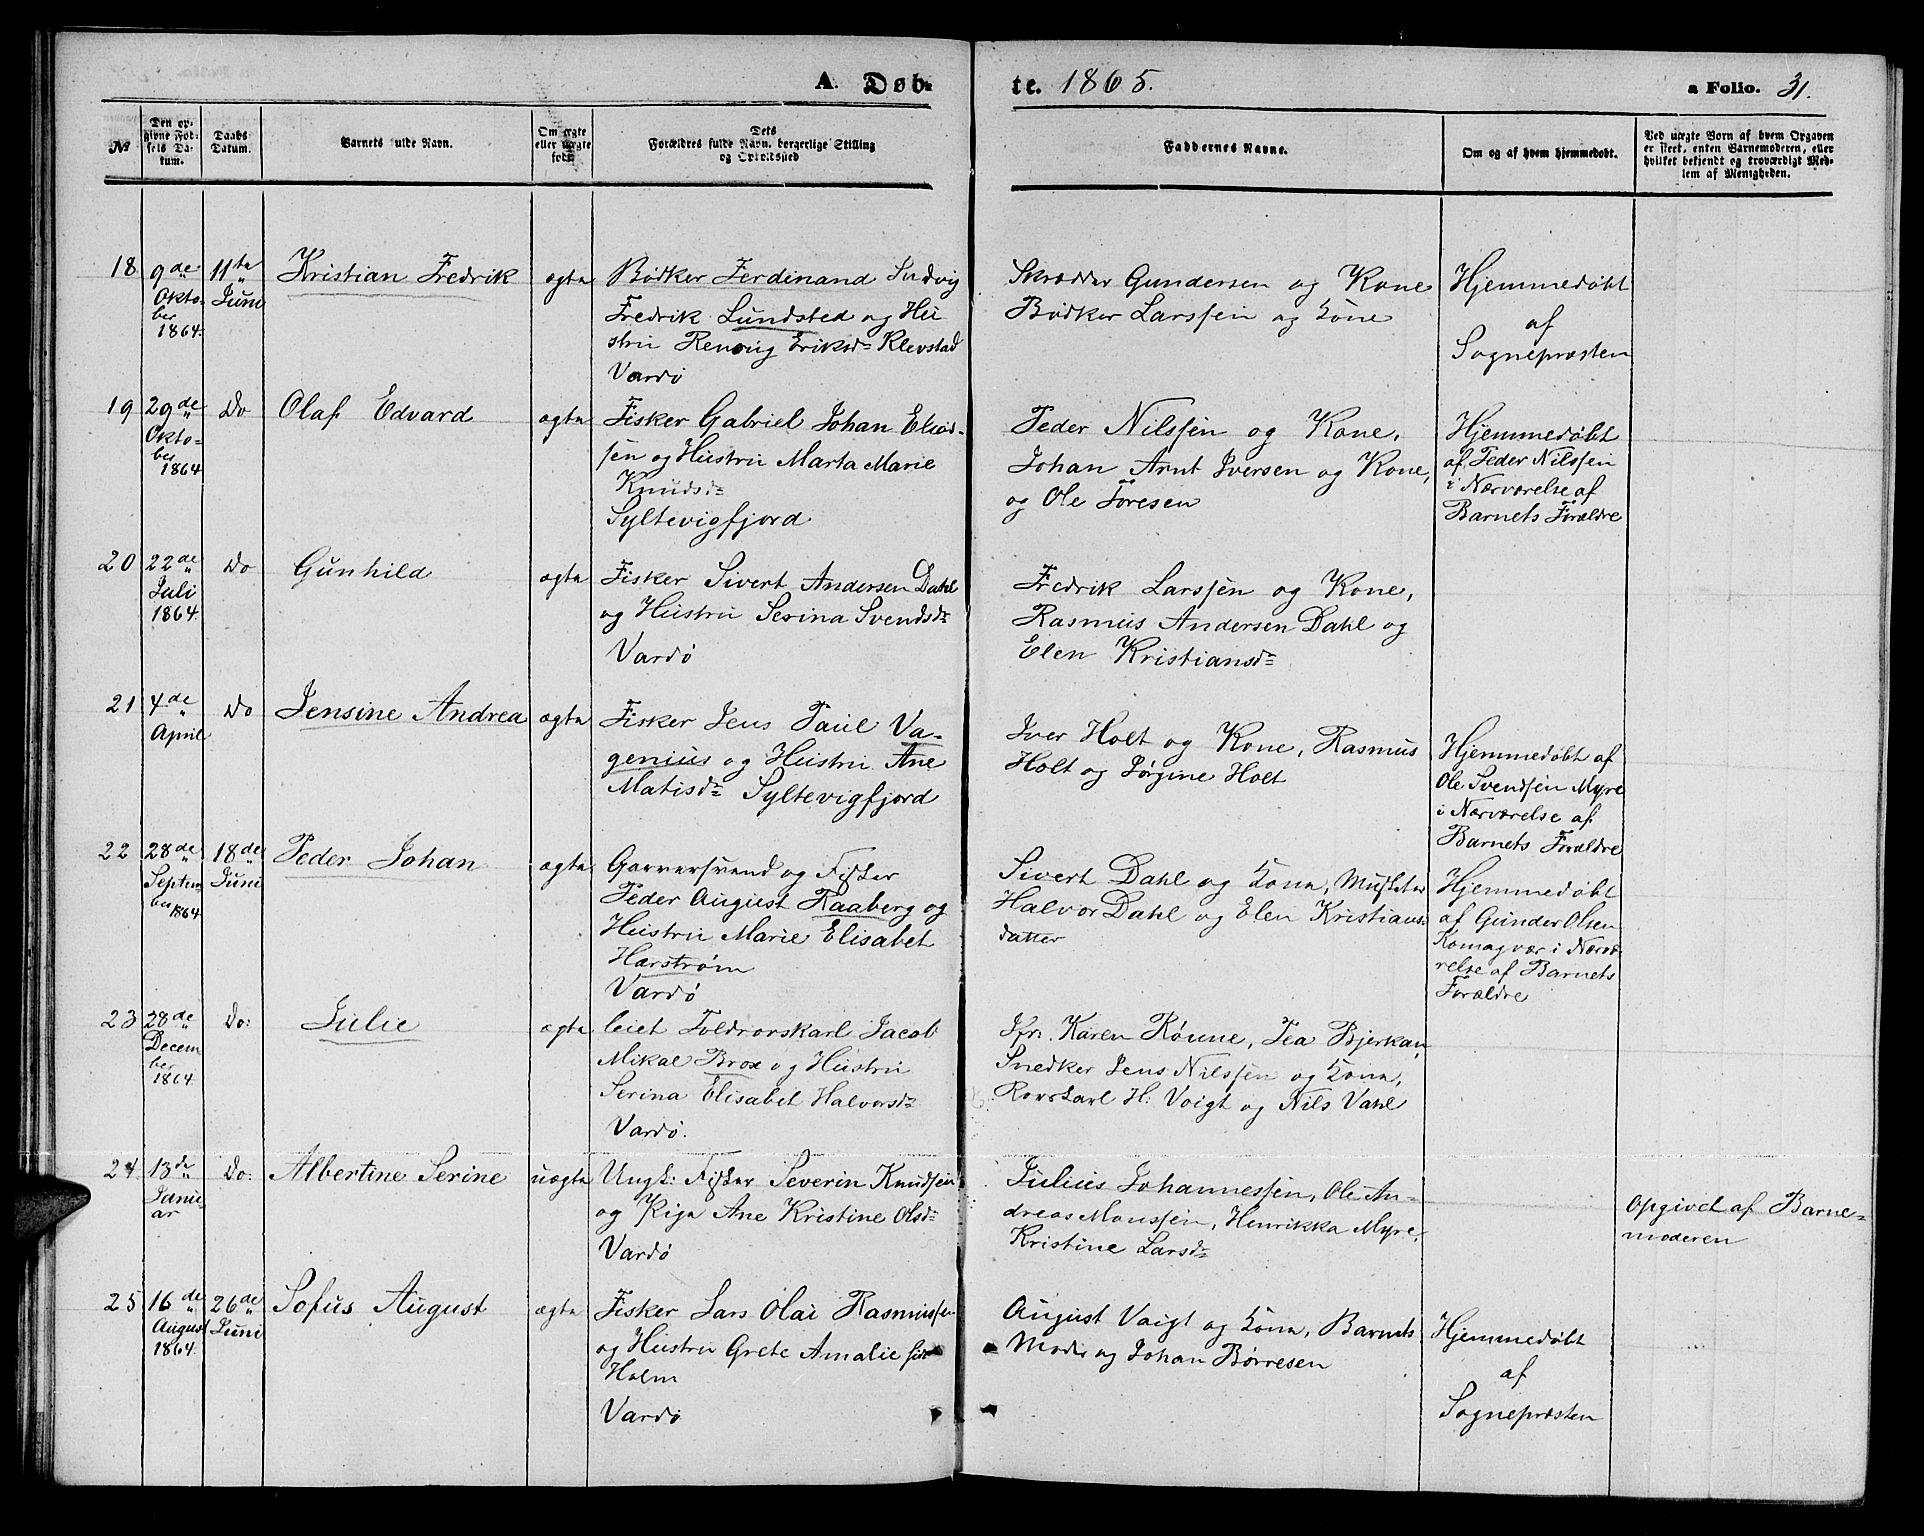 A. Døb-
te. 1865.
a Folio. 31.
№
Den op-
givne Fød-
sels Da-
tum.
Daabs
Datum.
Barnets fulde Navn.
Om ægte
eller uægte
født.
Dets
Forældres fulde Navn, borgerlige Stilling
og Opholdssted
Faddernes Navne.
Om og af hvem hjemmedøbt.
Ved uægte Børn af hvem Opgaven
er skeet, enten Barnemoderen, eller
hvilket bekjendt og troværdigt Med-
lem af Menigheden.
18
9de
Okto-
ber
1864.
11te
Juni
Kristian Fredrik
ægte
Bødker Ferdinand Ludvig
Fredrik Lundsted og Hu
stru Renung Eriksdr Klevstad
Vardö
Skrædder Gundersen og Kone
Bødker Larssen og Kone
Hjemmedøbt
af
Sognepræsten
19
29de
Okto-
ber
1864
Do
Olaf Edvard
ægte
Fisker Gabriel Johan Eliæd-
sen og Hustru Marta Marie
Knudsdr
Syltevigfjord
Peder Nilssen og Kone,
Johan Arnt Iversen og Kone,
og Ole Toresen
Hjemmedøbt
af Peder Nilssen
i Nærværelse af
Barnets Forældre
20
22de
Juli
1864
Do
Gunhild
ægte
Fisker Sivert Andersen Dahl
og Hustru Serina Svendsdr
Vardö
Fredrik Larssen og Kone,
Rasmus Andersen Dahl og
Elen Kristiansdr
21
4de
April
Do
Jensine Andrea
ægte
Fisker Jens Paul Va-
genius og Hustru Ane
Matisdr Syltevigfjord
Iver Holt og Kone, Rasmus
Holt og Jørgine Holt
Hjemmedøbt af
Ole Svendsen Myre
i Nærværelse af
Barnets Forældre
22
28de
Septem-
ber
1864
18de
Juni
Peder Johan
ægte
Garversvend og Fisker
Peder August Raaberg og
Hustru Marie Elisabet
Harstrøm
Vardö
Sivert Dahl og Kone, Musketer
Halvor Dahl og Elen Kristians-
datter
Hjemmedøbt
af Gunder Olsen
Komagvær i Nærvæ-
relse af Barnets
Forældre
23
28de
Decem
ber
1864
Do:
Julie
ægte
leiet Toldrorskarl Jacob
Mikal Brox og Hustru
Serina Elisabet Halvorsdr
Vardö.
Jfr. Karen Rönne, Tea Bjerkan,
Snedker Jens Nilssen og Kone,
Rorskarl H: Voigt og Nils Vahl
24
13de
Janu-
ar
Do:
Albertine Serine
uægte
Ungk: Fisker Severin Knudsen
og Piga Ane Kristine Olsdr
Vardö
Julius Johannessen, Ole An-
dreas Monssen, Henrikka Myre,
Kristine Larsdr
Opgivet af Barne-
moderen
25
16de
August
1864
26de
Juni
Sofus August
ægte
Fisker Lars Olai Rasmussen
og Hustru Grete Amalie
Holm
Vardö
August Voigt og Kone, Barnets
Moder og Johan Børresen
Hjemmedøbt
af
Sognepræsten